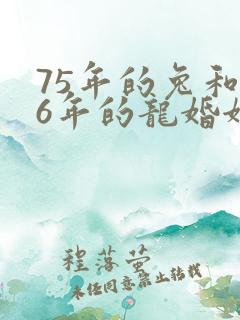 75年的兔和
6年的龍婚
程落萤
未任同意禁止转载